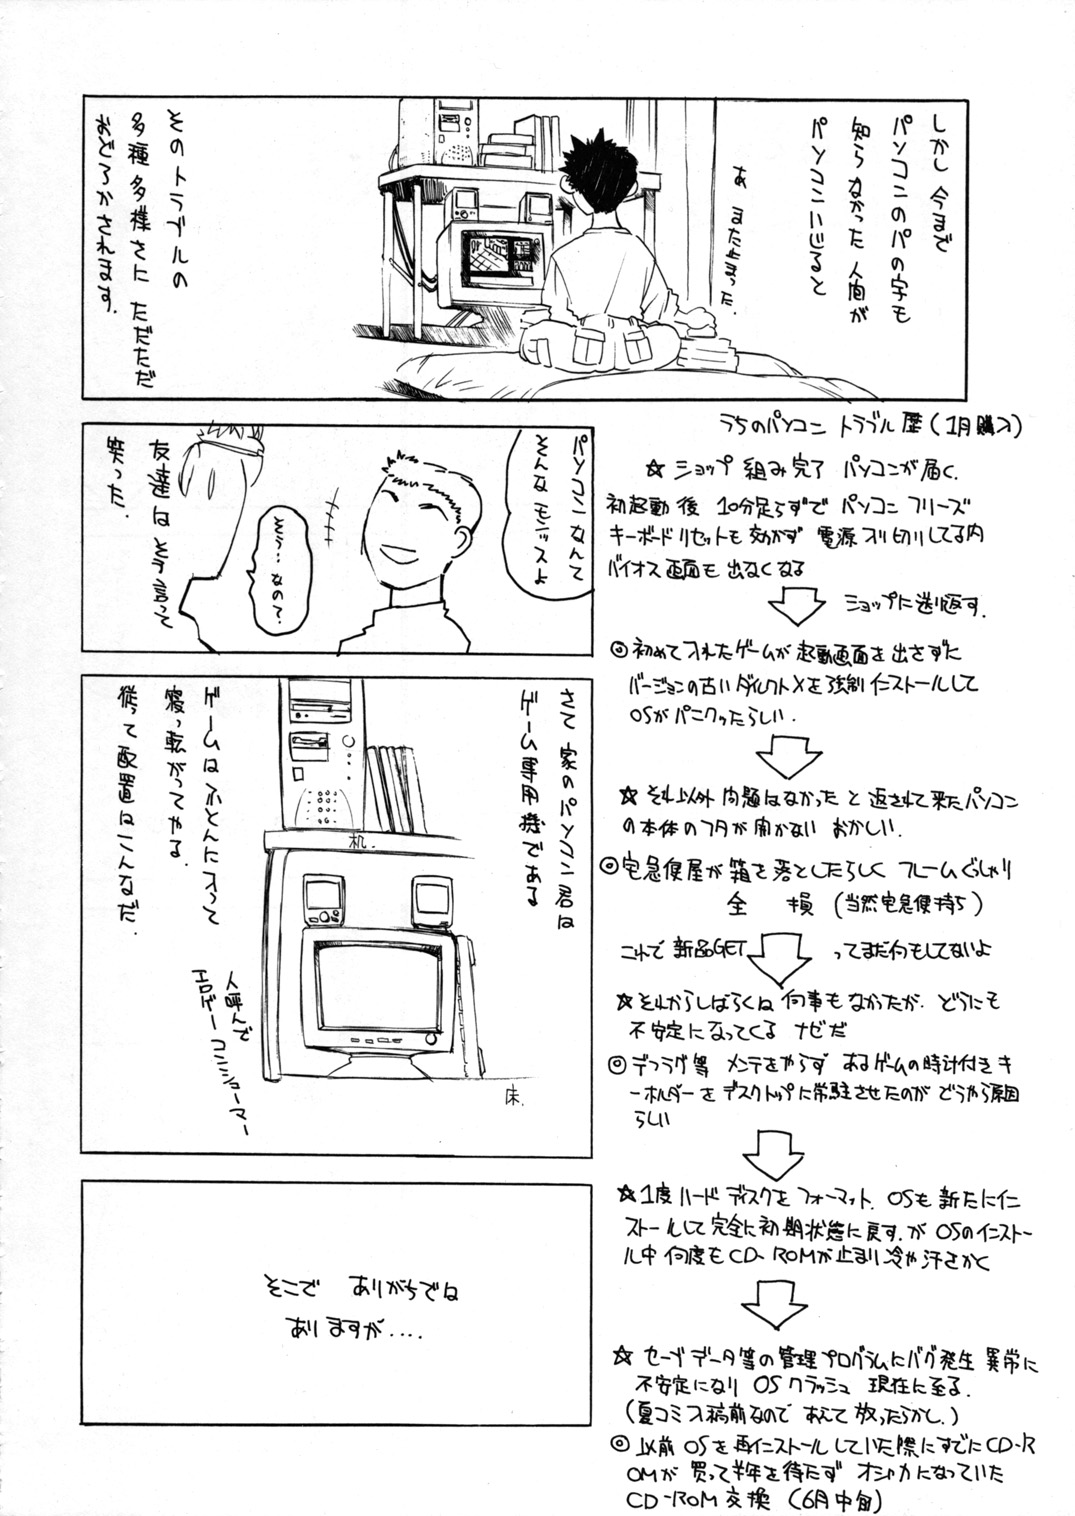 しかし 今まで
パソコンのパの字も
知らなかった 人間が
パソコンいじると
あ また止まった.
そのトラブルの
多種多様さに ただただ
おどろかされます.
パソコンなんて
そんなモンッスよ
そう…なの?
友達は そう言って
笑った.
さて 家のパソコン君は
ゲーム専用機である
机.
ゲームは ふとんに入って
寝っ転がってやる.
従って配置はこんなだ.
人呼んで
エロゲーコンショーマー
床.
そこで ありがちでは
ありますが....
うちのパソコン トラブル歴(1月購入)
☆ショップ 組み完了 パソコンが届く.
初起動後 10分足らずで パソコン フリーズ
キーボードリセットも効かず 電源入り切りしてる内
バイオス画面も 出なくなる
ショップに送り返す.
◎初めて入れたゲームが 起動画面を出さずに
バージョンの古いダイレクトXを強制インストールして
OSが パニクッたらしい.
☆それ以外 問題はなかった と 返されて来たパソコン
の本体のフタが 開かない おかしい.
◎宅急便屋が 箱を落としたらしく フレームぐしゃり
全 損 (当然宅急便持ち)
これで 新品GET ってまだ何もしてないよ
☆それからしばらくは 何事もなかったが. どうにも
不安定になってくる ナゼだ
◎デフラグ等 メンテをやらず あるゲームの時計付きキ
ーホルダーをデスクトップに常駐させたのが どうやら原因
らしい
☆1度 ハードディスクを フォーマット. OSも 新たにイン
ストールして 完全に初期状態に戻す. が OSのインストー
ル中 何度もCD-ROMが止まり 冷や汗さかく
☆セーブデータ等の管理プログラムにバグ発生 異常に
不安定になり OS クラッシュ 現在に至る.
(夏コミ入稿前なので あえて 放ったらかし.)
◎以前 OSを再インストールしていた際にすでにCD-R
OMが 買って半年を待たず オシャカになっていた
CD-ROM 交換 (6月中旬)